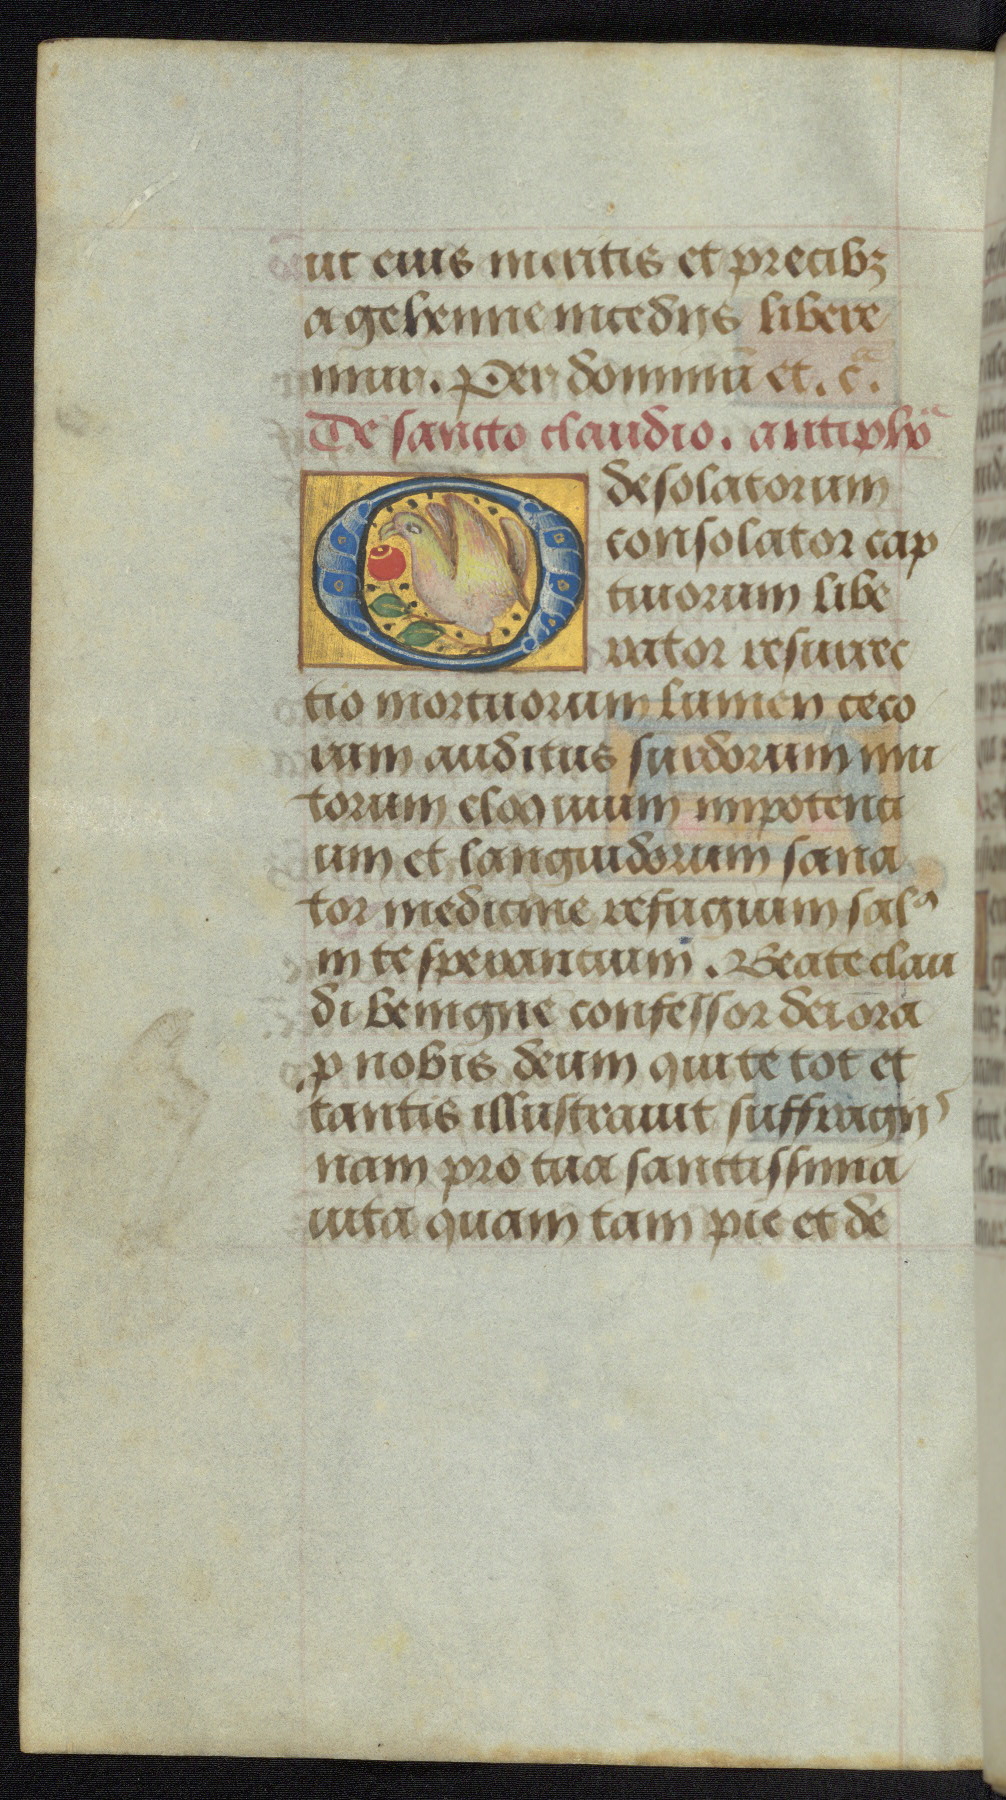 ut eius meritis et precibꝫ
a gehenne incendijs libere
mur. Per dominū et. cᷓ.
De sancto claudio. antiphoᷓ
O desolatorum
consolator cap
tiuorum libe
rator resurrec
tio mortuorum lumen ceco
rum auditus surdorum mu
torum eloquium impotenti
um et languidorum sana
tor medicine refugium salᷓ
in te sperantium. Beate clau
di benigne confessor dei ora
p nobis deum qui te tot et
tantis illustrauit suffragijs
nam pro tua sanctissima
uita quam tam pie et de